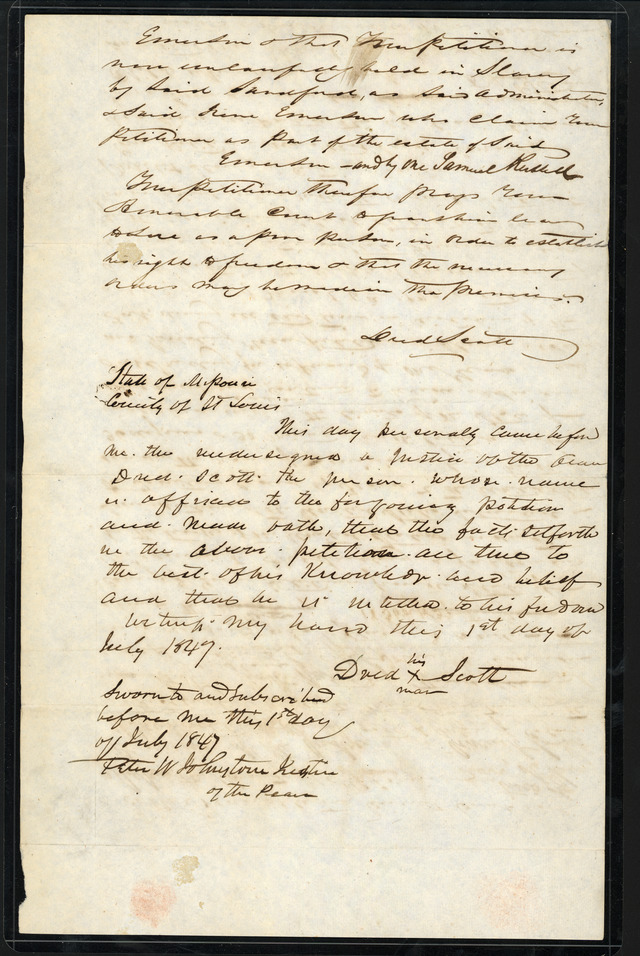 Emerson & that Your Petitioner is
now unlawfully held in Slavery
by Said Sandford, as Said Administrator,
& Said Irene Emerson who claims Your
Petitioner as part of the estate of Said
Emerson and by one Samuel Russell
Your Petitioner therefor prays Your
Honorable Court to grant him leave
to Sue as a poor person, in order to establish
his right to freedom & that the necessary
orders may be made in the Premises.
Dred Scott
State of Missouri
County of St Louis
This day personally came before
me the undersigned a Justice of the Peace
Dred Scott the person whose name
is affixed to the forgoing petition
and made oath, that the facts setforth
in the above petition are true to
the best of his Knowledge and belief
and that he is intitled to his freedom
Witness my hand this 1st day of
July 1847.
Dred his X mark Scott
Sworn to and subscribed
before me this 1st day
of July 1847
Peter W Johnstone Justice
of the Peace